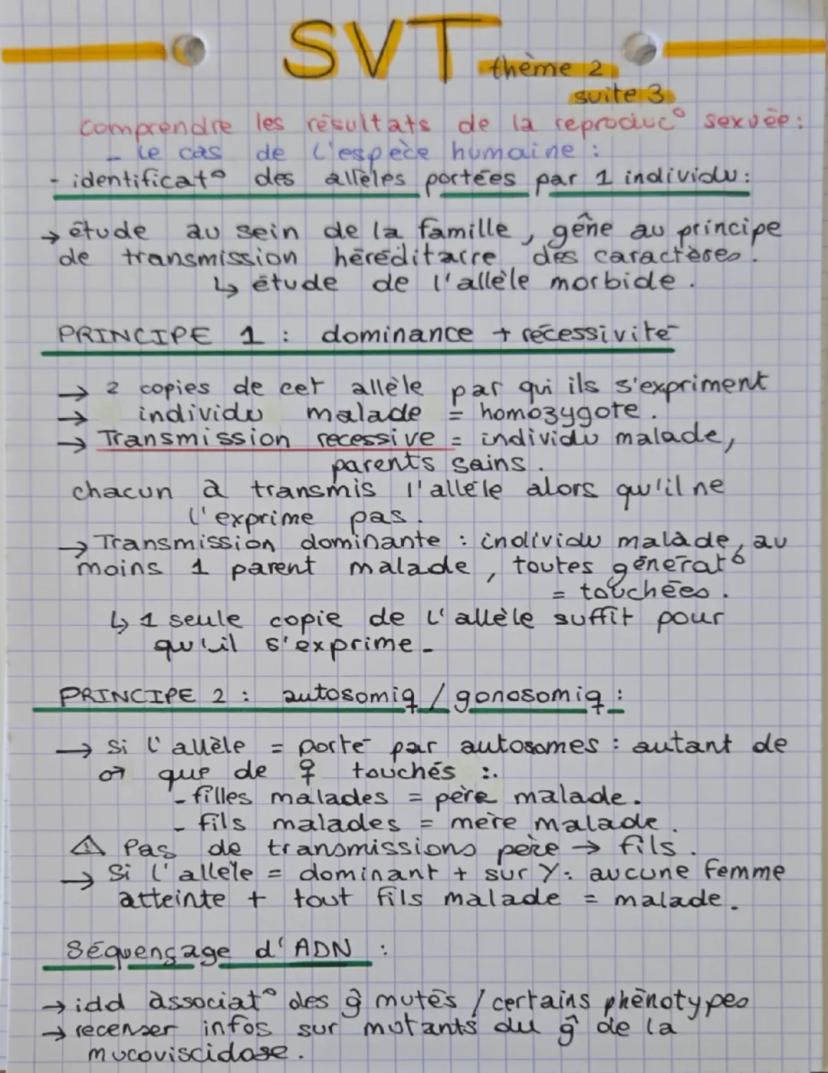 SVT
thème 2
suite 3
comprendre les résultats de la reproduc° sexuée :
- le cas de l'espèce humaine :
- identificat° des allèles portées par 1 individu :
→ étude au sein de la famille, gêne au principe
de transmission héréditaire des caractères.
↳ étude de l'allèle morbide.
PRINCIPE 1 : dominance + récessivité
→ 2 copies de cet allèle par qui ils s'expriment
→ individu malade = homozygote.
→ Transmission recessive = individu malade,
parents sains.
chacun à transmis l'allèle alors qu'il ne
l'exprime pas.
→ Transmission dominante : individu malade, au
moins 1 parent malade, toutes générat°
= touchées.
↳ 1 seule copie de l'allèle suffit pour
qu'il s'exprime.
PRINCIPE 2 : autosomiq / gonosomiq :
→ Si l'allèle = porté par autosomes : autant de
♂ que de ♀ touchés :.
- filles malades = père malade.
- fils malades = mère malade.
⚠ Pas de transmissions père → fils.
→ Si l'allèle = dominant + sur Y : aucune femme
atteinte + tout fils malade = malade.
Séquençage d'ADN :
→ idd associat° des ĝ mutés / certains phénotypes
→ recenser infos sur mutants du ĝ de la
mucoviscidose.